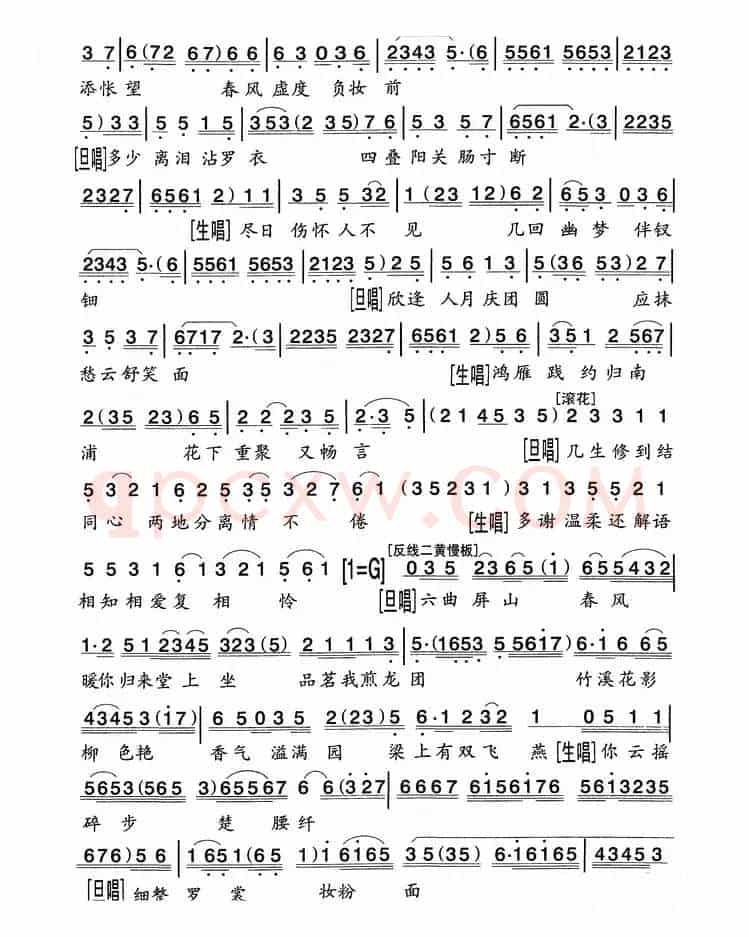 3 7 | 6 (72 67) 6 6 | 6 3 03 6 | 2343 5·(6 | 5561 5653 | 2123
添怅望 春风虚度 负妆前
5) 3 3 | 5 5 1 5 | 353(2 35) 7 6 | 5 3 5 7 | 6561 2·(3 | 2235
[旦唱]多少 离泪 沾罗 衣 四叠 阳关 肠寸 断
2327 | 6561 2) 1 1 | 3 5 5 32 | 1 (23 12) 6 2 | 6 5 3 03 6
[生唱] 尽日 伤怀 人不 见 几回 幽 梦 伴钗
2343 5·(6 | 5561 5653 | 2123 5) 2 5 | 5 6 1 3 | 5 (36 53) 2 7
钿 [旦唱]欣逢 人月 庆团 圆 应抹
3 5 3 7 | 6717 2·(3 | 2235 2327 | 6561 2) 5 6 | 351 2 567
愁云舒笑 面 [生唱]鸿雁 践 约归南
2 (35 23) 6 5 | 2 2 235 | 2·3 5 | (2 1 4 5 3 5) 2 3 3 1 1
[滚花]
浦 花下 重聚 又畅 言 [旦唱]几生修到结
5 3 2 1 6 2 5 3 5 3 2 7 6 1 (3 5 2 3 1) 3 1 3 5 5 2 1
同心 两地分离情 不 倦 [生唱]多谢温柔还解语
qpcxw.com
5 5 3 1 6 1 3 2 1 5 6 1 [1=G] 035 2365 (1) 655432
[反线二黄慢板]
相知相爱复 相 怜 [旦唱]六曲 屏 山 春 风
1·2 51 2345 323(5) 2 1111 | 5·(1653 55617) 6·16 65
暖你归来堂 上 坐 品茗我煎龙 团 竹溪花影
43453(17) | 6 5035 2(23)5 6·1 232 1 051 1
柳 色艳 香气 溢满 园 梁上有双飞 燕[生唱]你云摇
5653(565 3)65567 6 6(327 | 6667 6156176 5613235
碎步 楚 腰纤
676) 5 6 | 1 651(65 1) 6165 35(35) 6·16165 | 43453
[旦唱]细整 罗 裳 妆粉 面